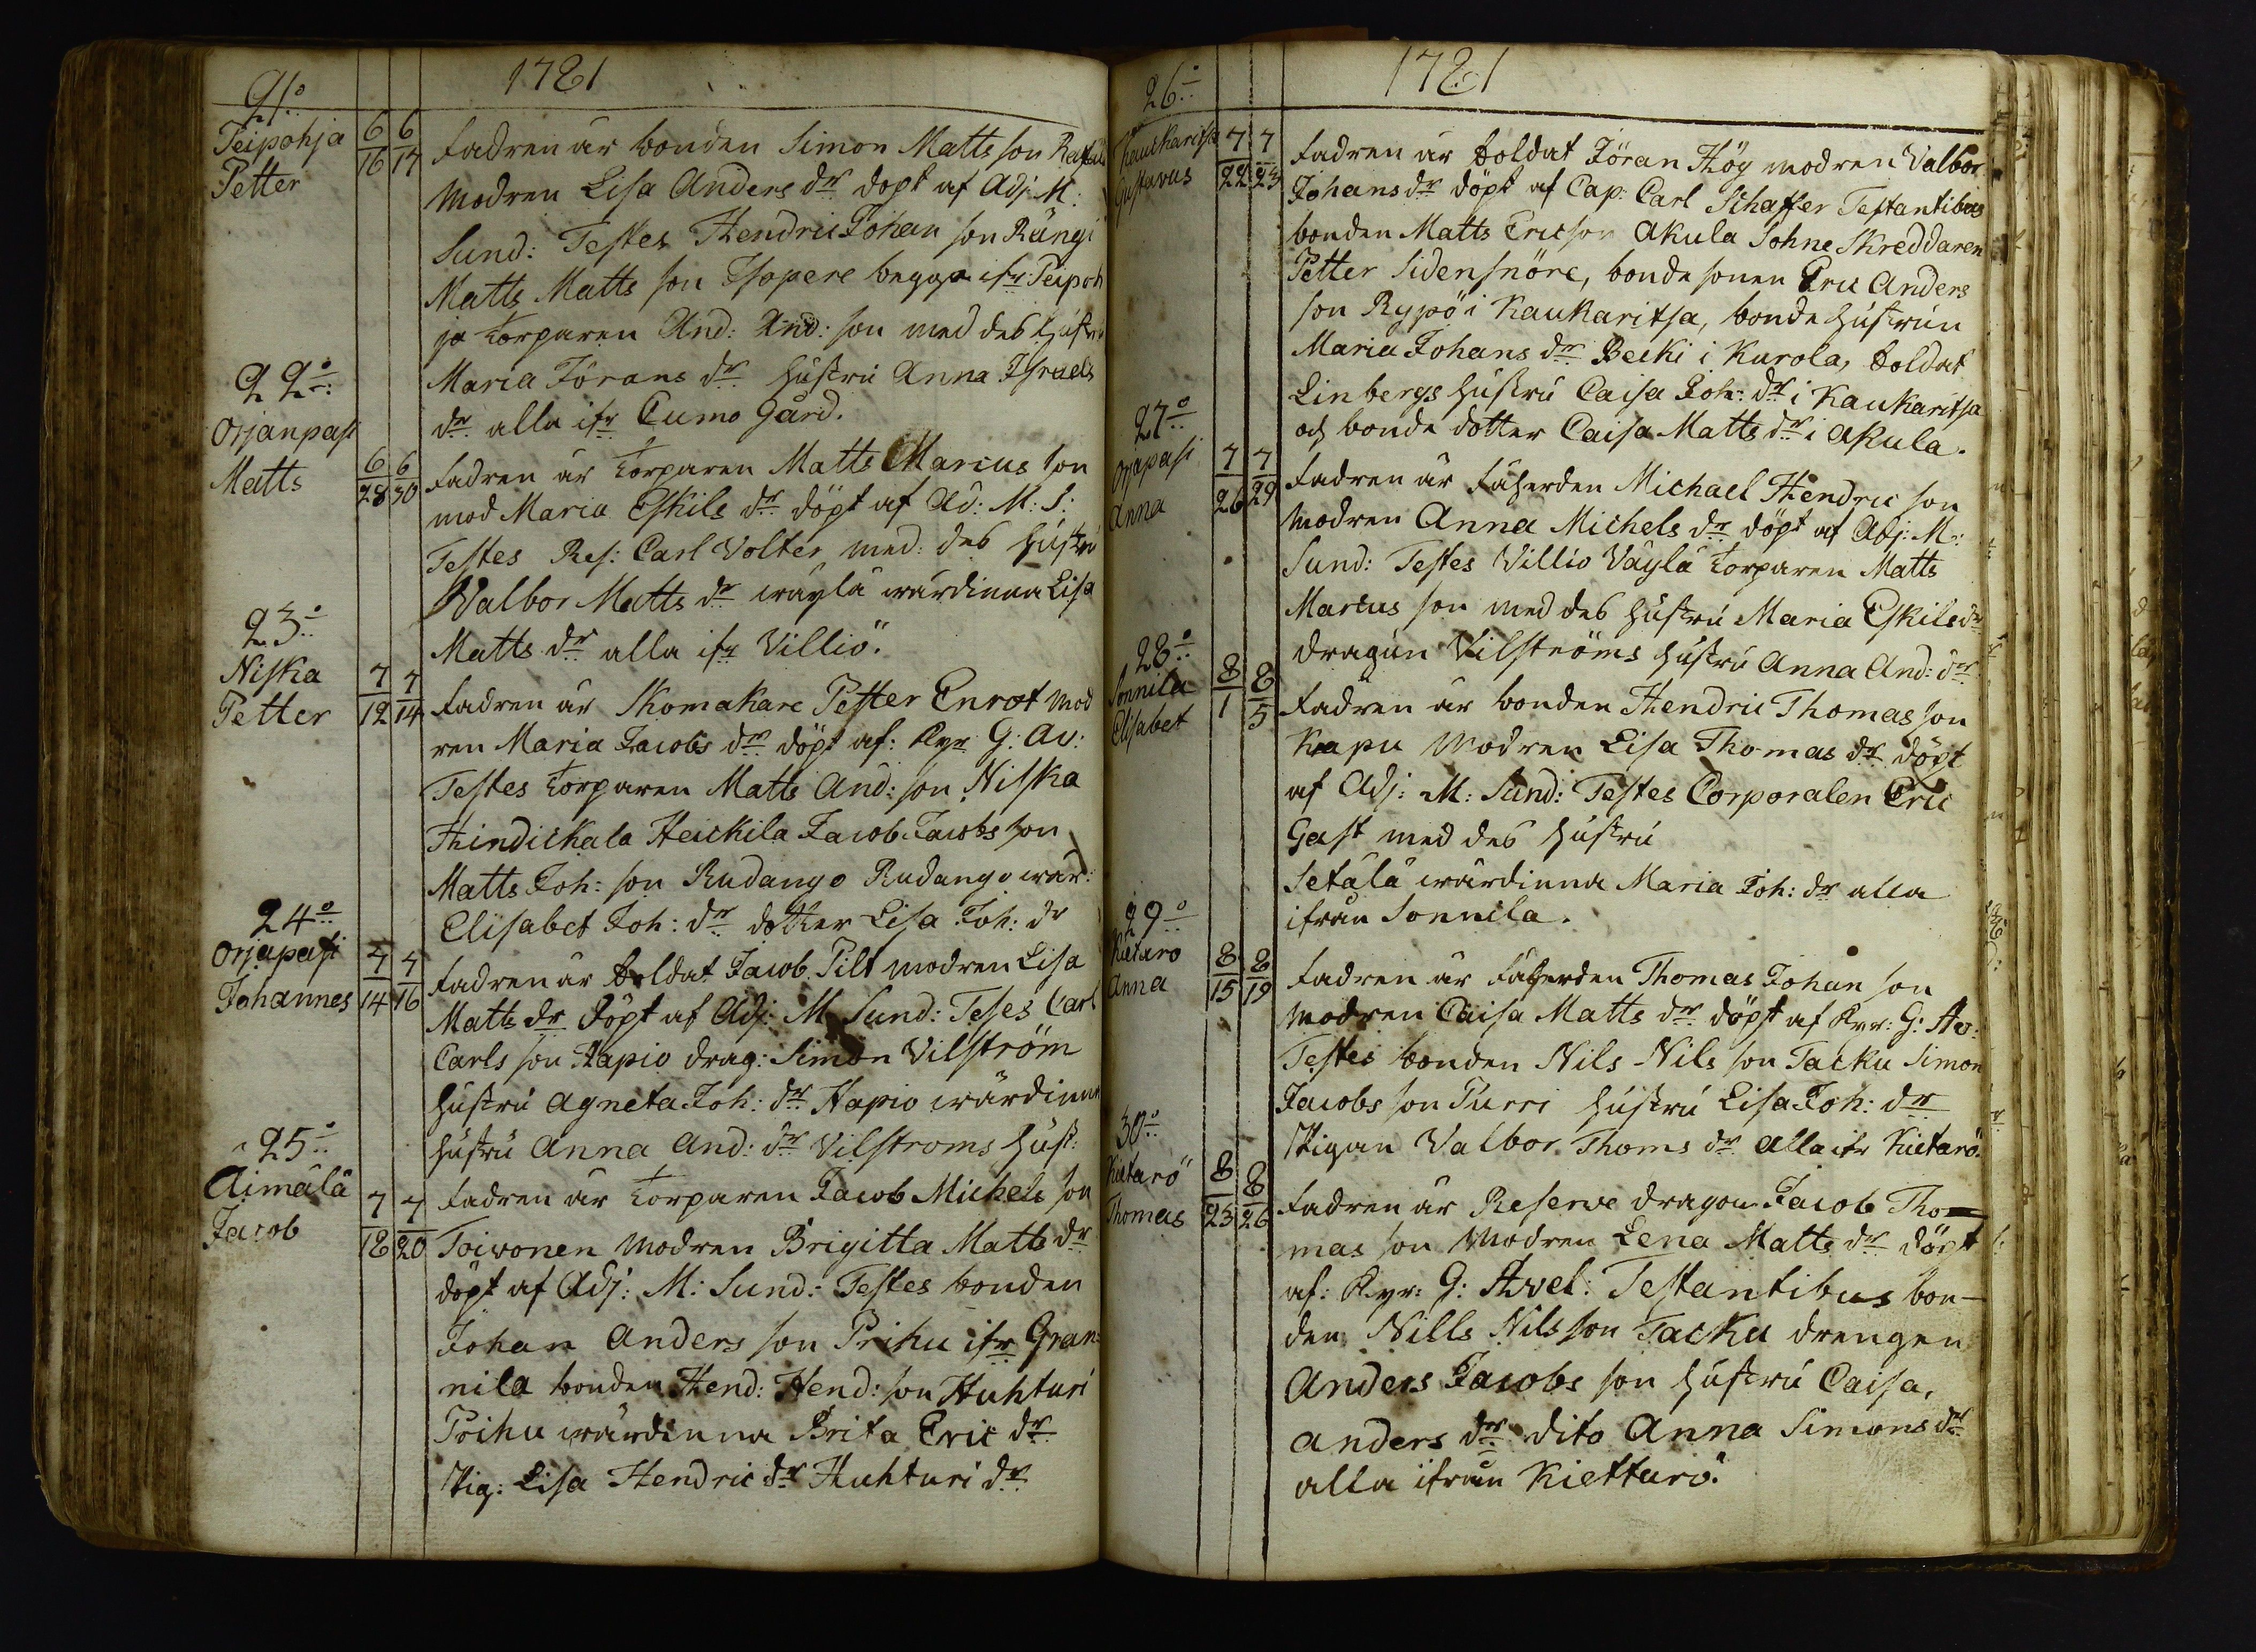 1781
21o
Peipohja
Petter
6 6
16 17
Fadren är bonden Simon Matts son
Modren Lisa Anders dr döpt af Adj: M:
Sund: Testes Hendric Johan son Rängi
Matts Matts son Isopere begge ifr: Peipoh
ja torparen And: And: son med des hustru
Maria Jörans dr hustru Anna Israels
dr alla ifr Cumo Gård.
22o
Orjanpasi
Matts
6 6
28 30
Fadren är torparen Matts Marcus son
mod Maria Eskils dr döpt af Ad: M: S:
Testes Res: Carl Volter med: des hustru
Walbor Matts dr wäylä wärdinna Lisa
Matts dr alla ifr Villiö.
23o
Niska
Petter
7 7
12 14
Fadren är Skomakare Petter Enrot mod
ren Maria Jacobs dr döpt af: Kyr G: Av:
Testes torparen Matts And: son Niska
Hindickala Heickila Jacob Jacobs son
Matts Joh: son Rudango Rudango wär:
Elisabet Joh: dr dotter Lisa Joh: dr
24o
Orjapasi
Johannes
7 7
14 16
Fadren är Soldat Jacob Pilt modren Lisa
Matts dr Döpt af Adj: M Sund: Teses Carl
Carls son Hapio drag: Simon Vilström
hustru Agneta Joh: dr Hapio wärdinna
hustru Anna And: dr Vilstroms hust:
25o
Äimälä
Jacob
7 7
18 20
Fadren är torparen Jacob Michels son
Toivonen Modren Brigitta Matts dr
döpt af Adj: M: Sund: Testes bonden
Johan Anders son Prihu ifr Gran:
nila bonden Hend: Hend: son Huhturi
Prihu wärdinna Brita Eric dr
Pig: Lisa Hendric dr Huhturi dr
1781
26o
Kauckaritsa
Gustavus
7 7
22 23
Fadren är Soldat Jöran Hög modren Valbor
Johans dr döpt af Cap: Carl Schaffer Testantibus
bonden Matts Ericson Akula Sohne Skreddaren
Petter Sidensnöre, bonde sonen Eric Anders
son Rypö i Kaukaritsa, bonde hustrun
Maria Johans dr Becki i Kurola, Soldat
Linbergs hustru Caisa Joh: dr i Kaukaritsa
och bonde dotter Caisa Matts dr i Akula.
27o
Orjapasi
Anna
7 7
26 29
Fadren är Fäherden Michael Hendric son
Modren Anna Michels dr döpt af Adj: M:
Sund: Testes Villio Väylä torparen Matts
Marcus son med des hustru Maria Eskils dr
dragun Vilströms hustru Anna And: dr
28o
Sonnila
Elisabet
8 8
1 5
Fadren är bonden Hendric Thomas son
Kapu Modren Lisa Thomas dr döpt
af Adj: M: Sund: Testes Corporalen Eric
Gast med des hustru
Setälä wärdinna Maria Joh: dr alla
ifrån Sonnila.
29o
Kietaro
Anna
8 8
15 19
Fadren är Fäherden Thomas Johan son
Modren Caisa Matts dr döpt af Kyr: G: Av:
Testes bonden Nils Nils son Tacku Simon
Jacobs son Purri hustru Lisa Joh: dr
Pigan Valbor Thoms dr alla ifr Kietarö.
30o
Kietarö
Thomas
8 8
23 26
Fadren är Reserve dragon Jacob Tho-
mas son Modren Lena Matts dr döpt
af: Kyr: G: Avel: Testantibus bon-
den Nills Nils son Tacku drengen
Anders Jacobs son hustru Caisa,
Anders dr dito Anna Simons dr
alla ifrån Kiettarö.